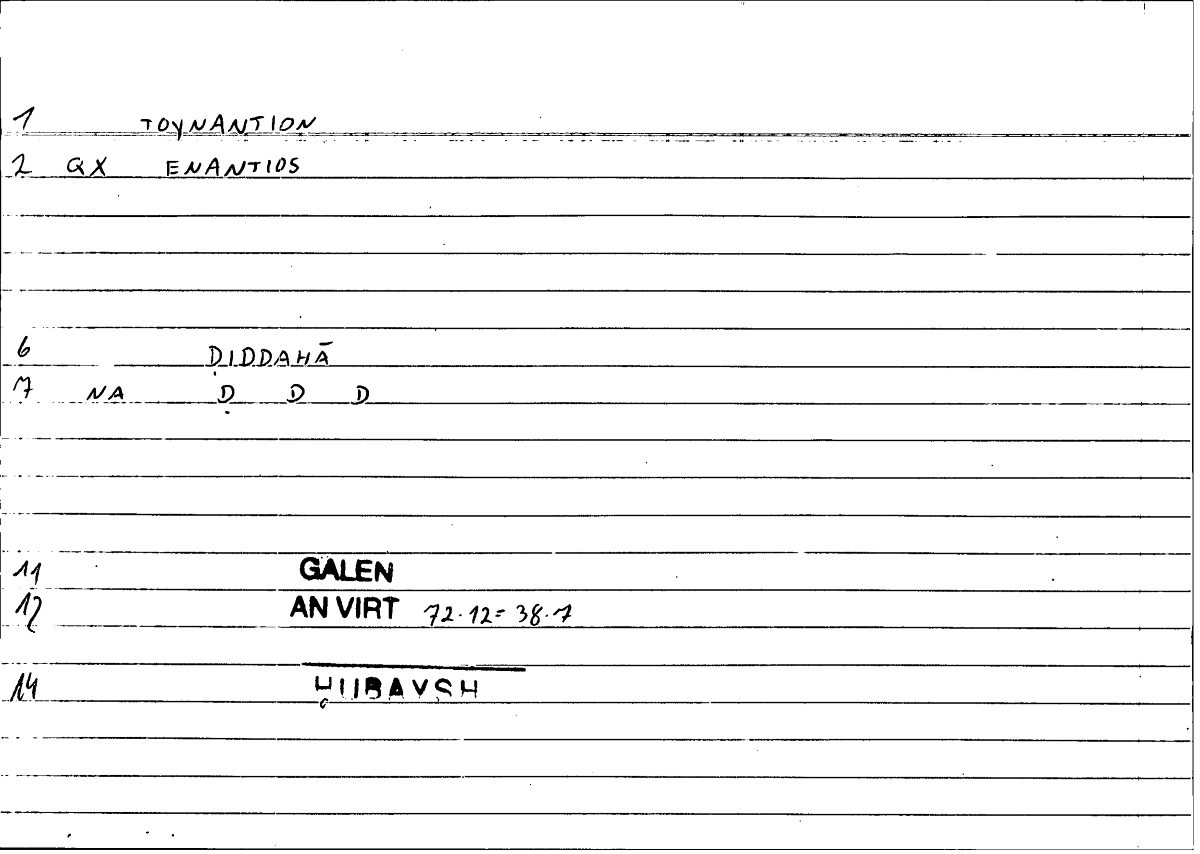 1 TOYNANTION
2 QX ENANTIOS
6 ḌIDDAHĀ
7 NA Ḍ D D
11 GALEN
12 AN VIRT 72.12=38.7
14 ḤUBAYSH